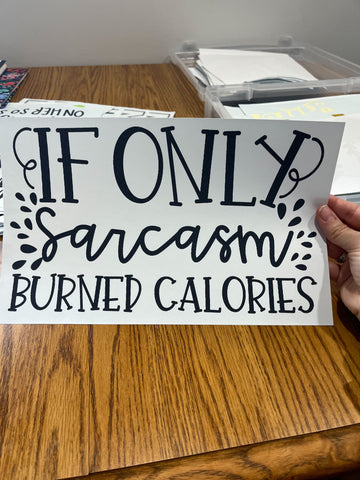 ON HER SO S
IF ONLY
Sarcasm
BURNED CALORIES